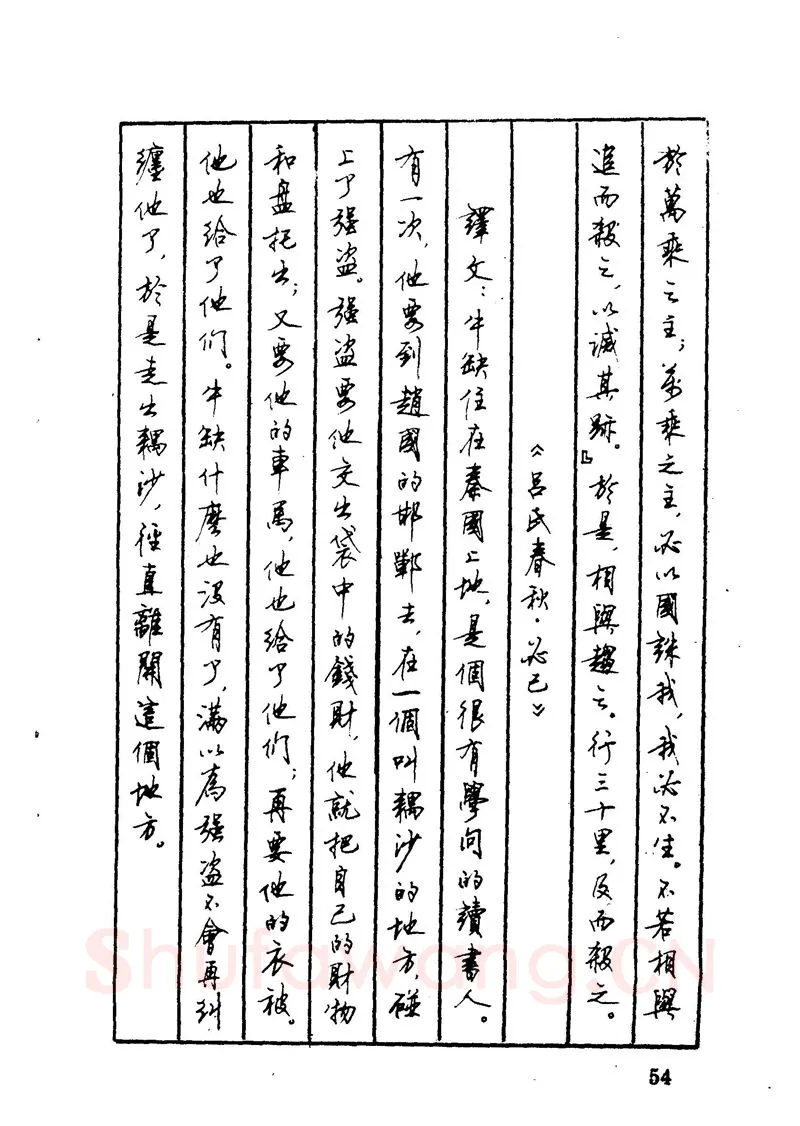 於萬乘之主；萬乘之主，必以國誅我，我必不生。不若相與
追而殺之，以滅其跡。』於是，相與趨之。行三十里，及而殺之。
《吕氏春秋·必己》
譯文：牛缺住在秦國上地，是個很有學问的讀書人。
有一次，他要到趙國的邯鄲去，在一個叫耦沙的地方，碰
上了强盗。强盗要他交出袋中的錢財，他就把自己的財物
和盘托出；又要他的車馬，他也給了他們；再要他的衣被。
他也給了他们。牛缺什麼也没有了，滿以為强盗不會再糾
纏他了，於是走出耦沙，徑直離開這個地方。
54
Shufawang.CN